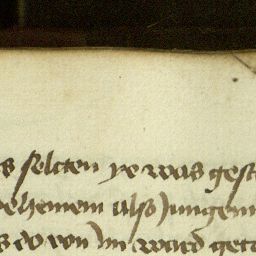 s selcten ye was gest
ehemem also Jungem
s do von Jm ward get